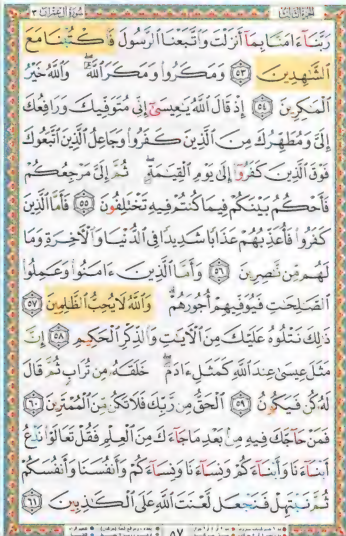 الجزء الثالث
سورة آل عمران ٣
رَبَّنَآ ءَامَنَّا بِمَآ أَنزَلْتَ وَٱتَّبَعْنَا ٱلرَّسُولَ فَٱكْتُبْنَا مَعَ
ٱلشَّٰهِدِينَ ٥٣ وَمَكَرُوا۟ وَمَكَرَ ٱللَّهُ ۖ وَٱللَّهُ خَيْرُ
ٱلْمَٰكِرِينَ ٥٤ إِذْ قَالَ ٱللَّهُ يَٰعِيسَىٰٓ إِنِّى مُتَوَفِّيكَ وَرَافِعُكَ
إِلَىَّ وَمُطَهِّرُكَ مِنَ ٱلَّذِينَ كَفَرُوا۟ وَجَاعِلُ ٱلَّذِينَ ٱتَّبَعُوكَ
فَوْقَ ٱلَّذِينَ كَفَرُوٓا۟ إِلَىٰ يَوْمِ ٱلْقِيَٰمَةِ ۖ ثُمَّ إِلَىَّ مَرْجِعُكُمْ
فَأَحْكُمُ بَيْنَكُمْ فِيمَا كُنتُمْ فِيهِ تَخْتَلِفُونَ ٥٥ فَأَمَّا ٱلَّذِينَ
كَفَرُوا۟ فَأُعَذِّبُهُمْ عَذَابًا شَدِيدًا فِى ٱلدُّنْيَا وَٱلْءَاخِرَةِ وَمَا
لَهُم مِّن نَّٰصِرِينَ ٥٦ وَأَمَّا ٱلَّذِينَ ءَامَنُوا۟ وَعَمِلُوا۟
ٱلصَّٰلِحَٰتِ فَيُوَفِّيهِمْ أُجُورَهُمْ ۗ وَٱللَّهُ لَا يُحِبُّ ٱلظَّٰلِمِينَ ٥٧
ذَٰلِكَ نَتْلُوهُ عَلَيْكَ مِنَ ٱلْءَايَٰتِ وَٱلذِّكْرِ ٱلْحَكِيمِ ٥٨ إِنَّ
مَثَلَ عِيسَىٰ عِندَ ٱللَّهِ كَمَثَلِ ءَادَمَ ۖ خَلَقَهُۥ مِن تُرَابٍ ثُمَّ قَالَ
لَهُۥ كُن فَيَكُونُ ٥٩ ٱلْحَقُّ مِن رَّبِّكَ فَلَا تَكُن مِّنَ ٱلْمُمْتَرِينَ ٦٠
فَمَنْ حَآجَّكَ فِيهِ مِنۢ بَعْدِ مَا جَآءَكَ مِنَ ٱلْعِلْمِ فَقُلْ تَعَالَوْا۟ نَدْعُ
أَبْنَآءَنَا وَأَبْنَآءَكُمْ وَنِسَآءَنَا وَنِسَآءَكُمْ وَأَنفُسَنَا وَأَنفُسَكُمْ
ثُمَّ نَبْتَهِلْ فَنَجْعَل لَّعْنَتَ ٱللَّهِ عَلَى ٱلْكَٰذِبِينَ ٦١
٥٧